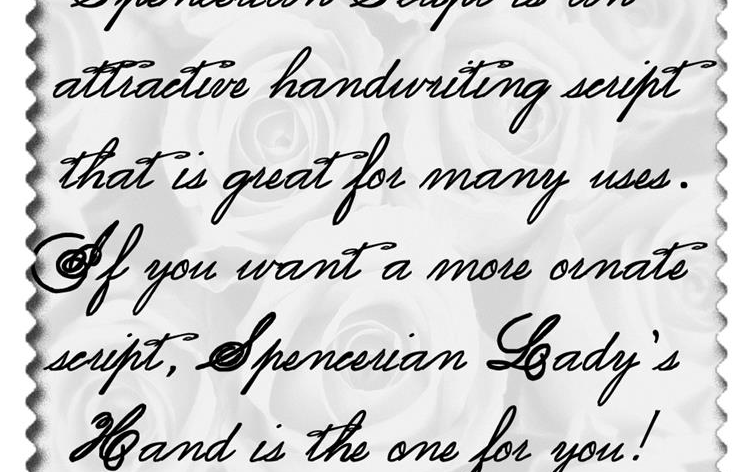 Spencerian Script is an
attractive handwriting script
that is great for many uses.
If you want a more ornate
script, Spencerian Lady's
Hand is the one for you!